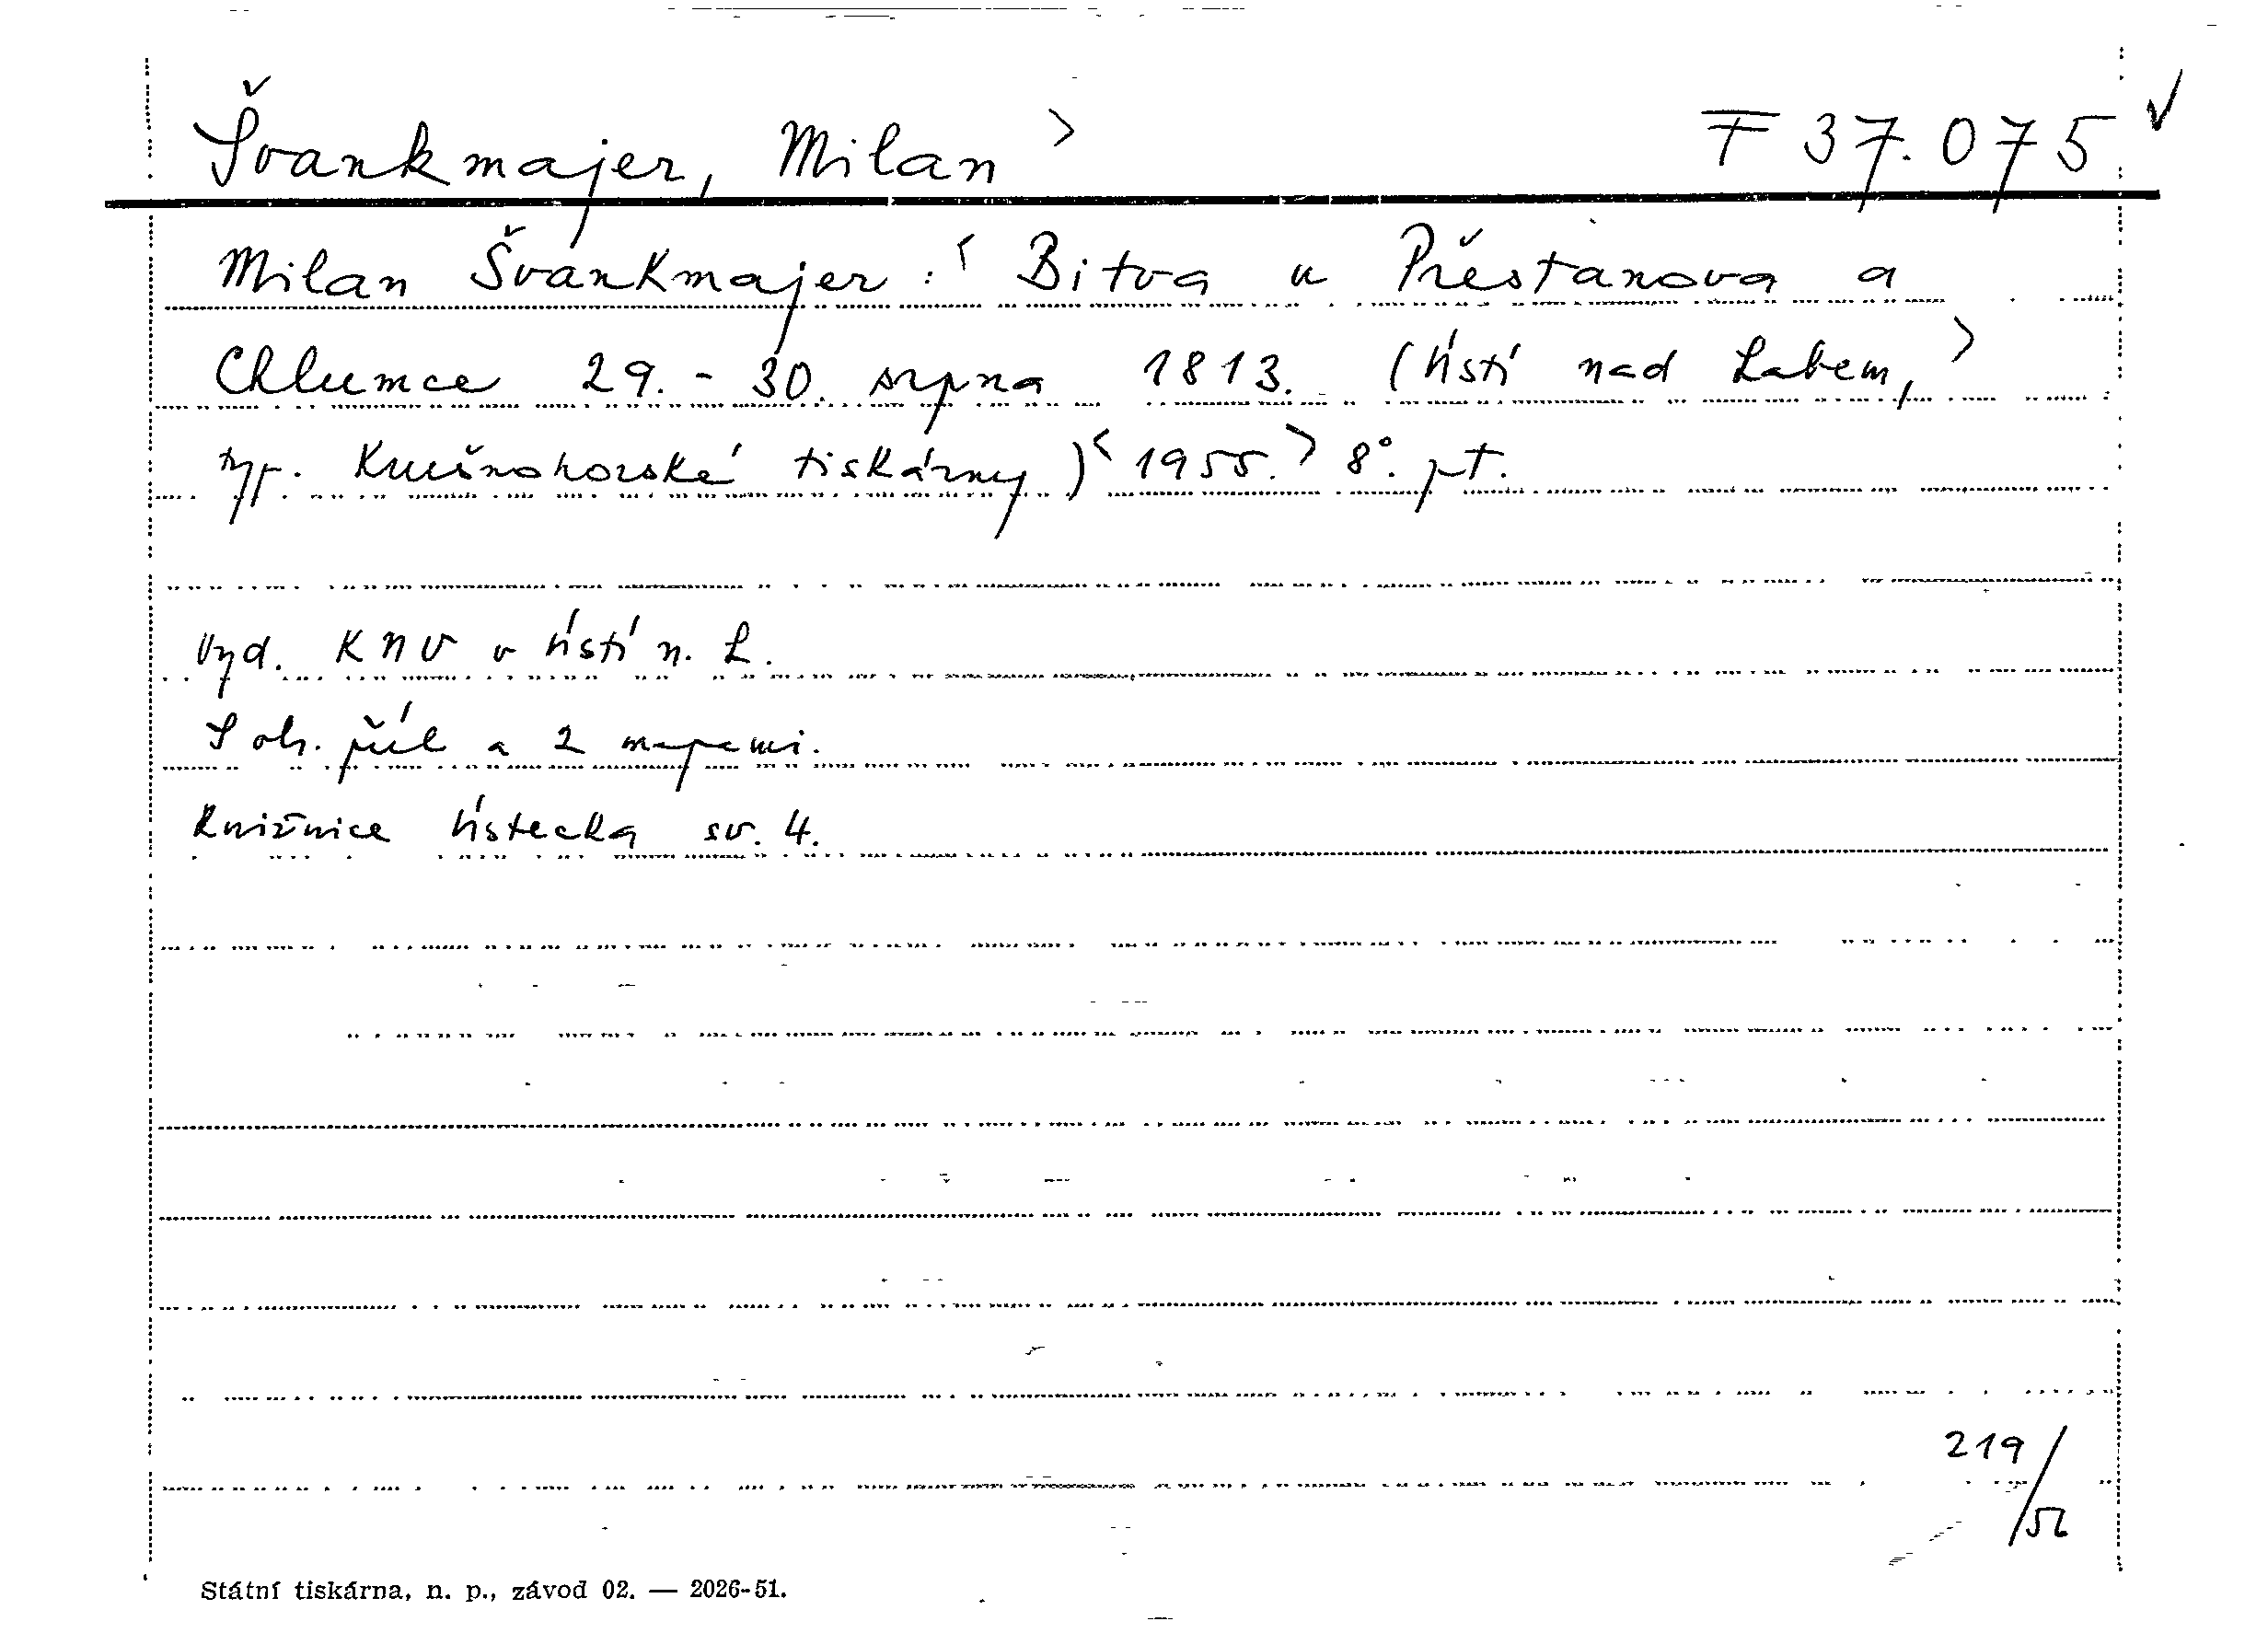 Švankmajer, Milan > F 37.075 ✓
Milan Švankmajer: < Bitva u Přestanova a
Chlumce 29.-30. srpna 1813. (Ústí nad Labem, >
typ. Krušnohorské tiskárny) < 1955. > 8°. pt.
Vyd. KNV v Ústí n. L.
S obr. příl a 2 mapami.
Knižnice Ústecka sv. 4.
219/56
Státní tiskárna, n. p., závod 02. — 2026-51.